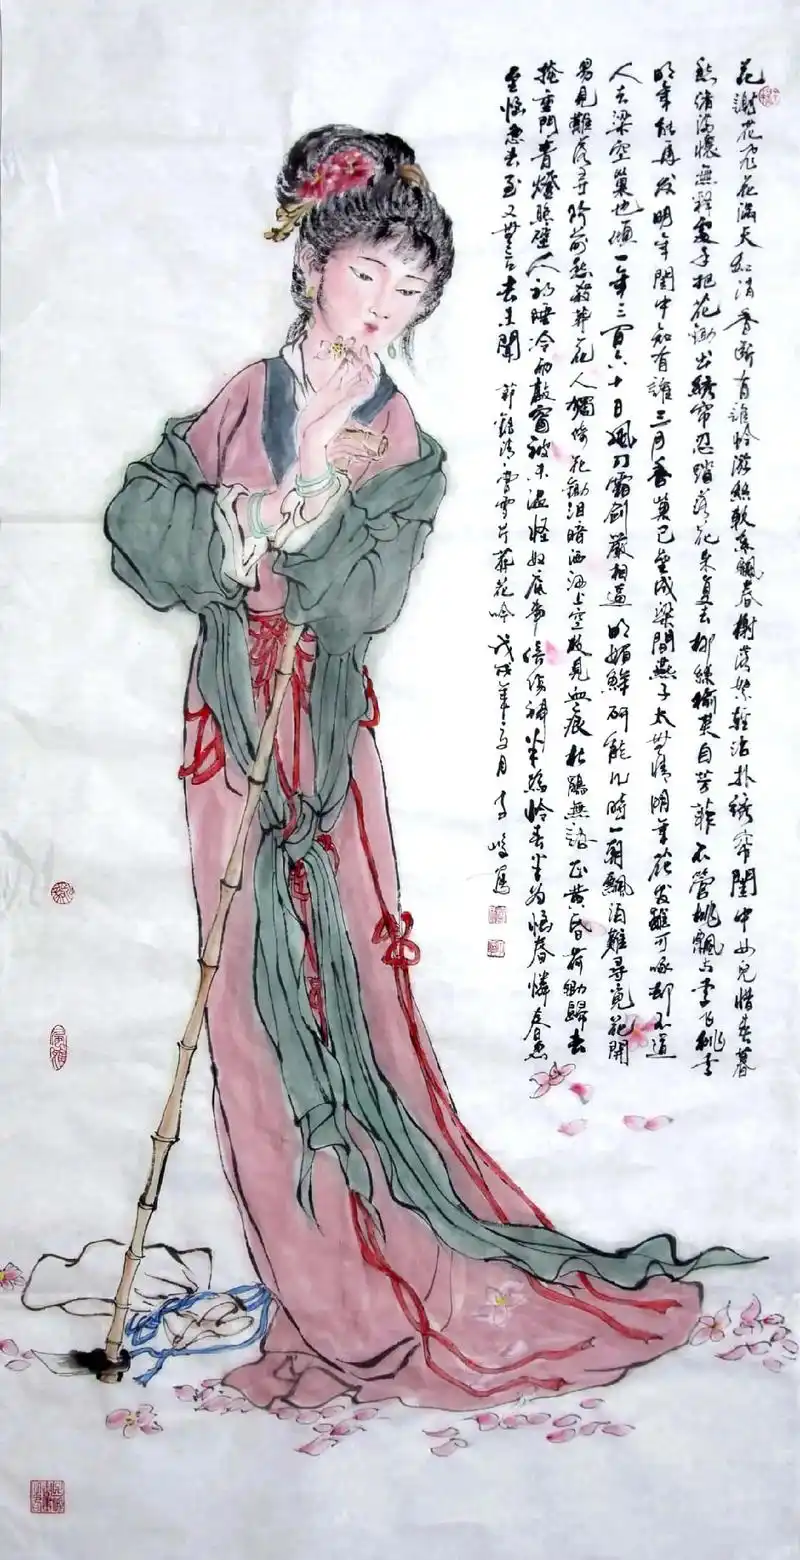 花謝花飛花滿天紅消香斷有誰怜游絲軟系飄春榭落絮輕沾扑繡帘閨中女兒惜春暮
愁緒滿懷無釋處手把花鋤出繡帘忍踏落花來復去柳絲榆莢自芳菲不管桃飄与李飞桃李
明年能再发明年閨中知有誰三月香巢已壘成梁間燕子太無情明年花发雖可啄却不道
人去梁空巢也傾一年三百六十日風刀霜劍嚴相逼明媚鮮研能几時一朝飄泊難尋覓花開
易見難落尋階前愁殺葬花人獨倚花鋤泪暗洒洒上空枝見血痕杜鵑無語正黃昏荷鋤歸去
掩重門青燈照壁人初睡冷雨敲窗被未溫怪奴底事倍傷神半為怜春半为惱春憐春忽
至惱忽去至又無言去未聞 節錄清曹雪芹葬花吟 戊戌年 月